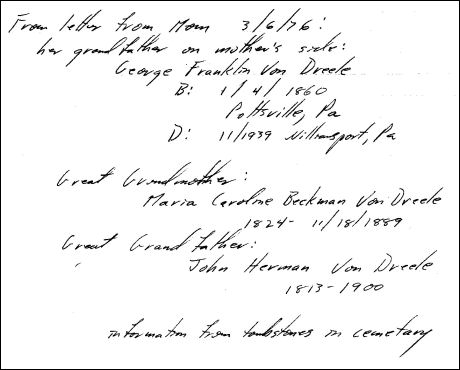 From letter from Mom 3/6/76:
her grandfather on mother's side:
George Franklin Von Dreele
B: 1/4/1860
Pottsville, Pa
D: 11/1939 Williamsport, Pa
Great Grandmother:
Maria Caroline Beckman Von Dreele
1824- 11/18/1889
Great Grandfather:
John Herman Von Dreele
1813-1900
information from tombstones in cemetary